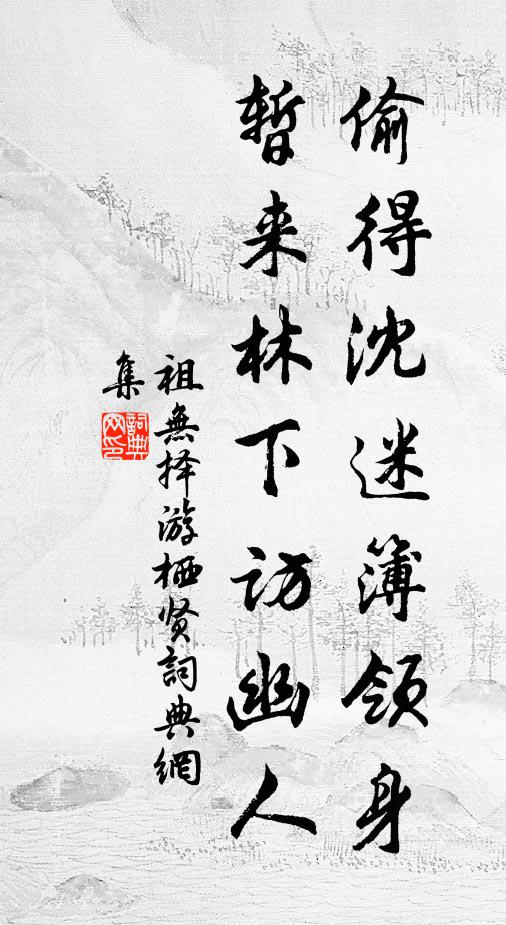 偷得沈迷簿领身
暂来林下访幽人
祖無择游栖贤詞典網
集
詞典
网印